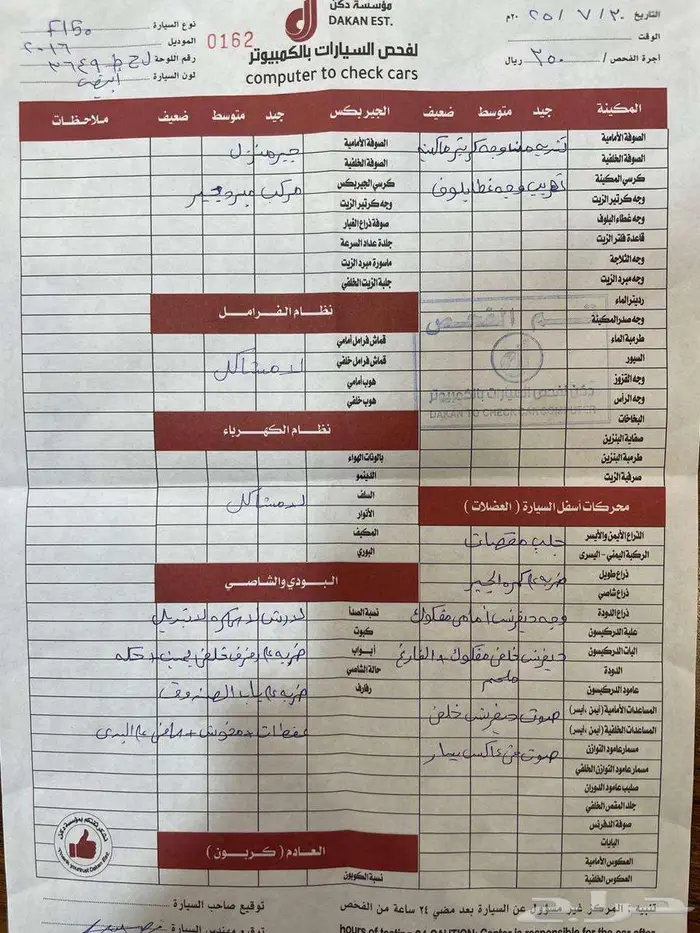 مؤسسة دكن
DAKAN EST.
لفحص السيارات بالكمبيوتر
computer to check cars
0162
التاريخ ٢٠ / ٧ / ٢٥ ٢٠م
الوقت
أجرة الفحص / ٣٥٠ ريال
نوع السيارة F150
الموديل ٢٠١٦
رقم اللوحة
لون السيارة أبيض
المكينة جيد متوسط ضعيف
الصوفة الأمامية
الصوفة الخلفية
كرسي المكينة
وجه كرتير الزيت
وجه غطاء البلوف
قاعدة فلتر الزيت
وجه الثلاجة
وجه مبرد الزيت
رديتر الماء
وجه صدر المكينة
طرمبة الماء
السيور
وجه القزوز
وجه الرأس
البخاخات
صفاية البنزين
طرمبة البنزين
صرفية الزيت
تهريب وجه غطا بلوف
تم الفحص
دكن لفحص السيارات بالكمبيوتر
DAKAN TO CHECK CAR COMPUTER
محركات أسفل السيارة ( العضلات )
الذراع الأيمن والأيسر
الركبة اليمنى - اليسرى
ذراع طويل
ذراع شاصي
ذراع الدودة
علبة الدركيسون
اليات الدركيسون
الدودة
عامود الدركسون
المساعدات الأمامية (أيمن ، أيسر)
المساعدات الخلفية (أيمن ، أيسر)
مسمار عامود التوازن
مسمار عامود التوازن الخلفي
صليب عامود الدوران
جلد المقص الخلفي
صوفة الدفرنس
اليايات
العكوس الأمامية
العكوس الخلفية
جلب مقصات
وجه ديفرنس أمامي مفكوك
ديفرنس خلفي مفكوك + الفارغ
ملحم
صوت ديفرنس خلفي
صوت في عاكس يسار
الجيربكس جيد متوسط ضعيف ملاحظات
الصوفة الأمامية
الصوفة الخلفية
كرسي الجيربكس
وجه كرتير الزيت
صوفة ذراع الغيار
جلدة عداد السرعة
ماسورة مبرد الزيت
جلبة الزيت الخلفي
جير منزل
نظام الفرامل
قماش فرامل أمامي
قماش فرامل خلفي
هوب أمامي
هوب خلفي
لا مشاكل
نظام الكهرباء
بالونات الهواء
الدينمو
السلف
الأنوار
المكيف
البوري
لا مشاكل
البودي والشاصي
نسبة الصدأ
كبوت
أبواب
حالة الشاصي
رفارف
ضربه ع رفرف خلفي يمين + حكه
ضربه ع باب الصندوق
العادم ( كربون )
نسبة الكوبون
شكراً لثقتكم بمؤسسة دكن
Thank you trust Dakan Est.
تنبيه : المركز غير مسؤول عن السيارة بعد مضي ٢٤ ساعة من الفحص
توقيع صاحب السيارة
توقيع مهندس السيارة
hours of testing 24 CAUTION: Center is responsible for the car after
حراج